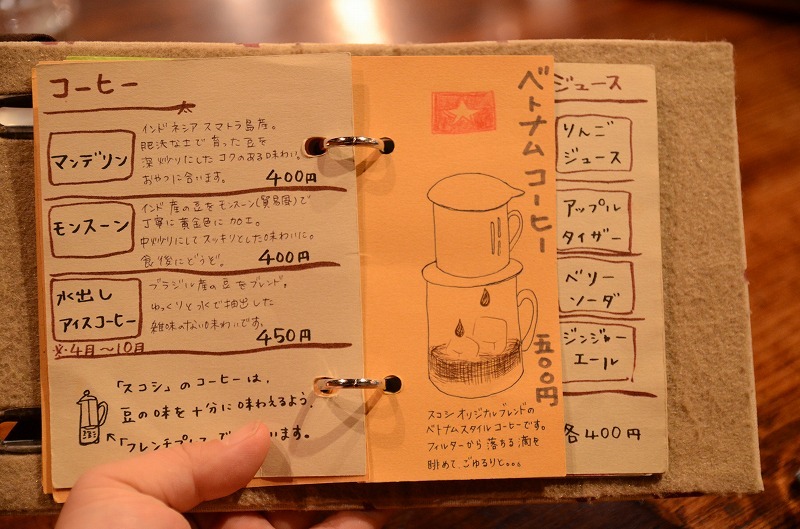 コーヒー
マンデリン
インドネシア スマトラ島産。
肥沃な土で育った豆を
深炒りにしたコクのある味わい。
おやつに合います。
400円
モンスーン
インド産の豆をモンスーン(貿易風)で
丁寧に黄金色に加工。
中炒りにしてスッキリとした味わいに。
食後にどうぞ。
400円
水出し
アイスコーヒー
ブラジル産の豆をブレンド。
ゆっくりと水で抽出した
雑味のない味わいです。
450円
※4月〜10月
「スコシ」のコーヒーは、
豆の味を十分に味わえるよう、
「フレンチプレス」で
います。
ベトナムコーヒー
五〇〇円
スコシオリジナルブレンドの
ベトナムスタイルコーヒーです。
フィルターから落ちる滴を
眺めて、ごゆるりと。。。
ジュース
りんご
ジュース
アップル
タイザー
ベリー
ソーダ
ジンジャー
エール
各400円